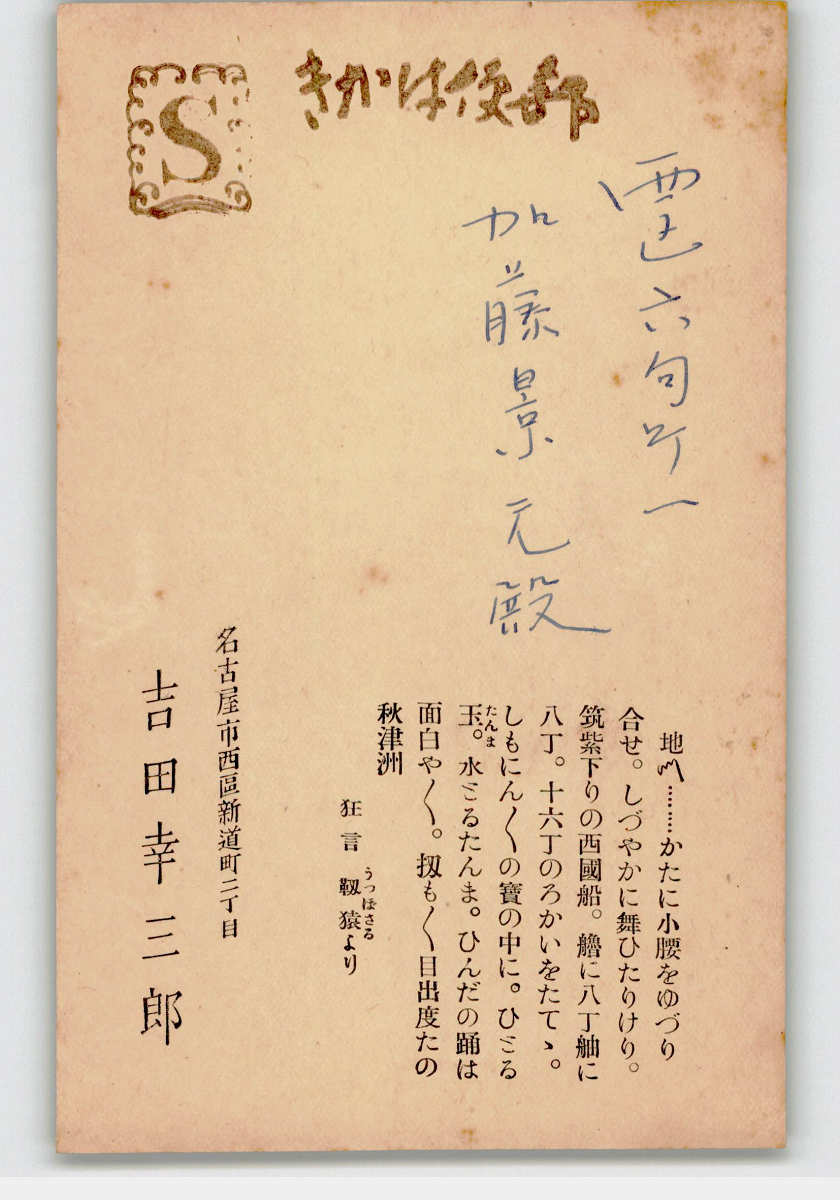 郵便はかき
S
西区六句町一
加藤景元殿
地〽……かたに小腰をゆづり
合せ。しづやかに舞ひたりけり。
筑紫下りの西國船。艫に八丁舳に
八丁。十六丁のろかいをたてゝ。
しもにん〳〵の寶の中に。ひとる
たんま
玉。水とるたんま。ひんだの踊は
面白や〳〵。扨も〳〵目出度たの
秋津洲
うつぼさる
狂言 靱猿より
名古屋市西區新道町二丁目
吉田幸三郎